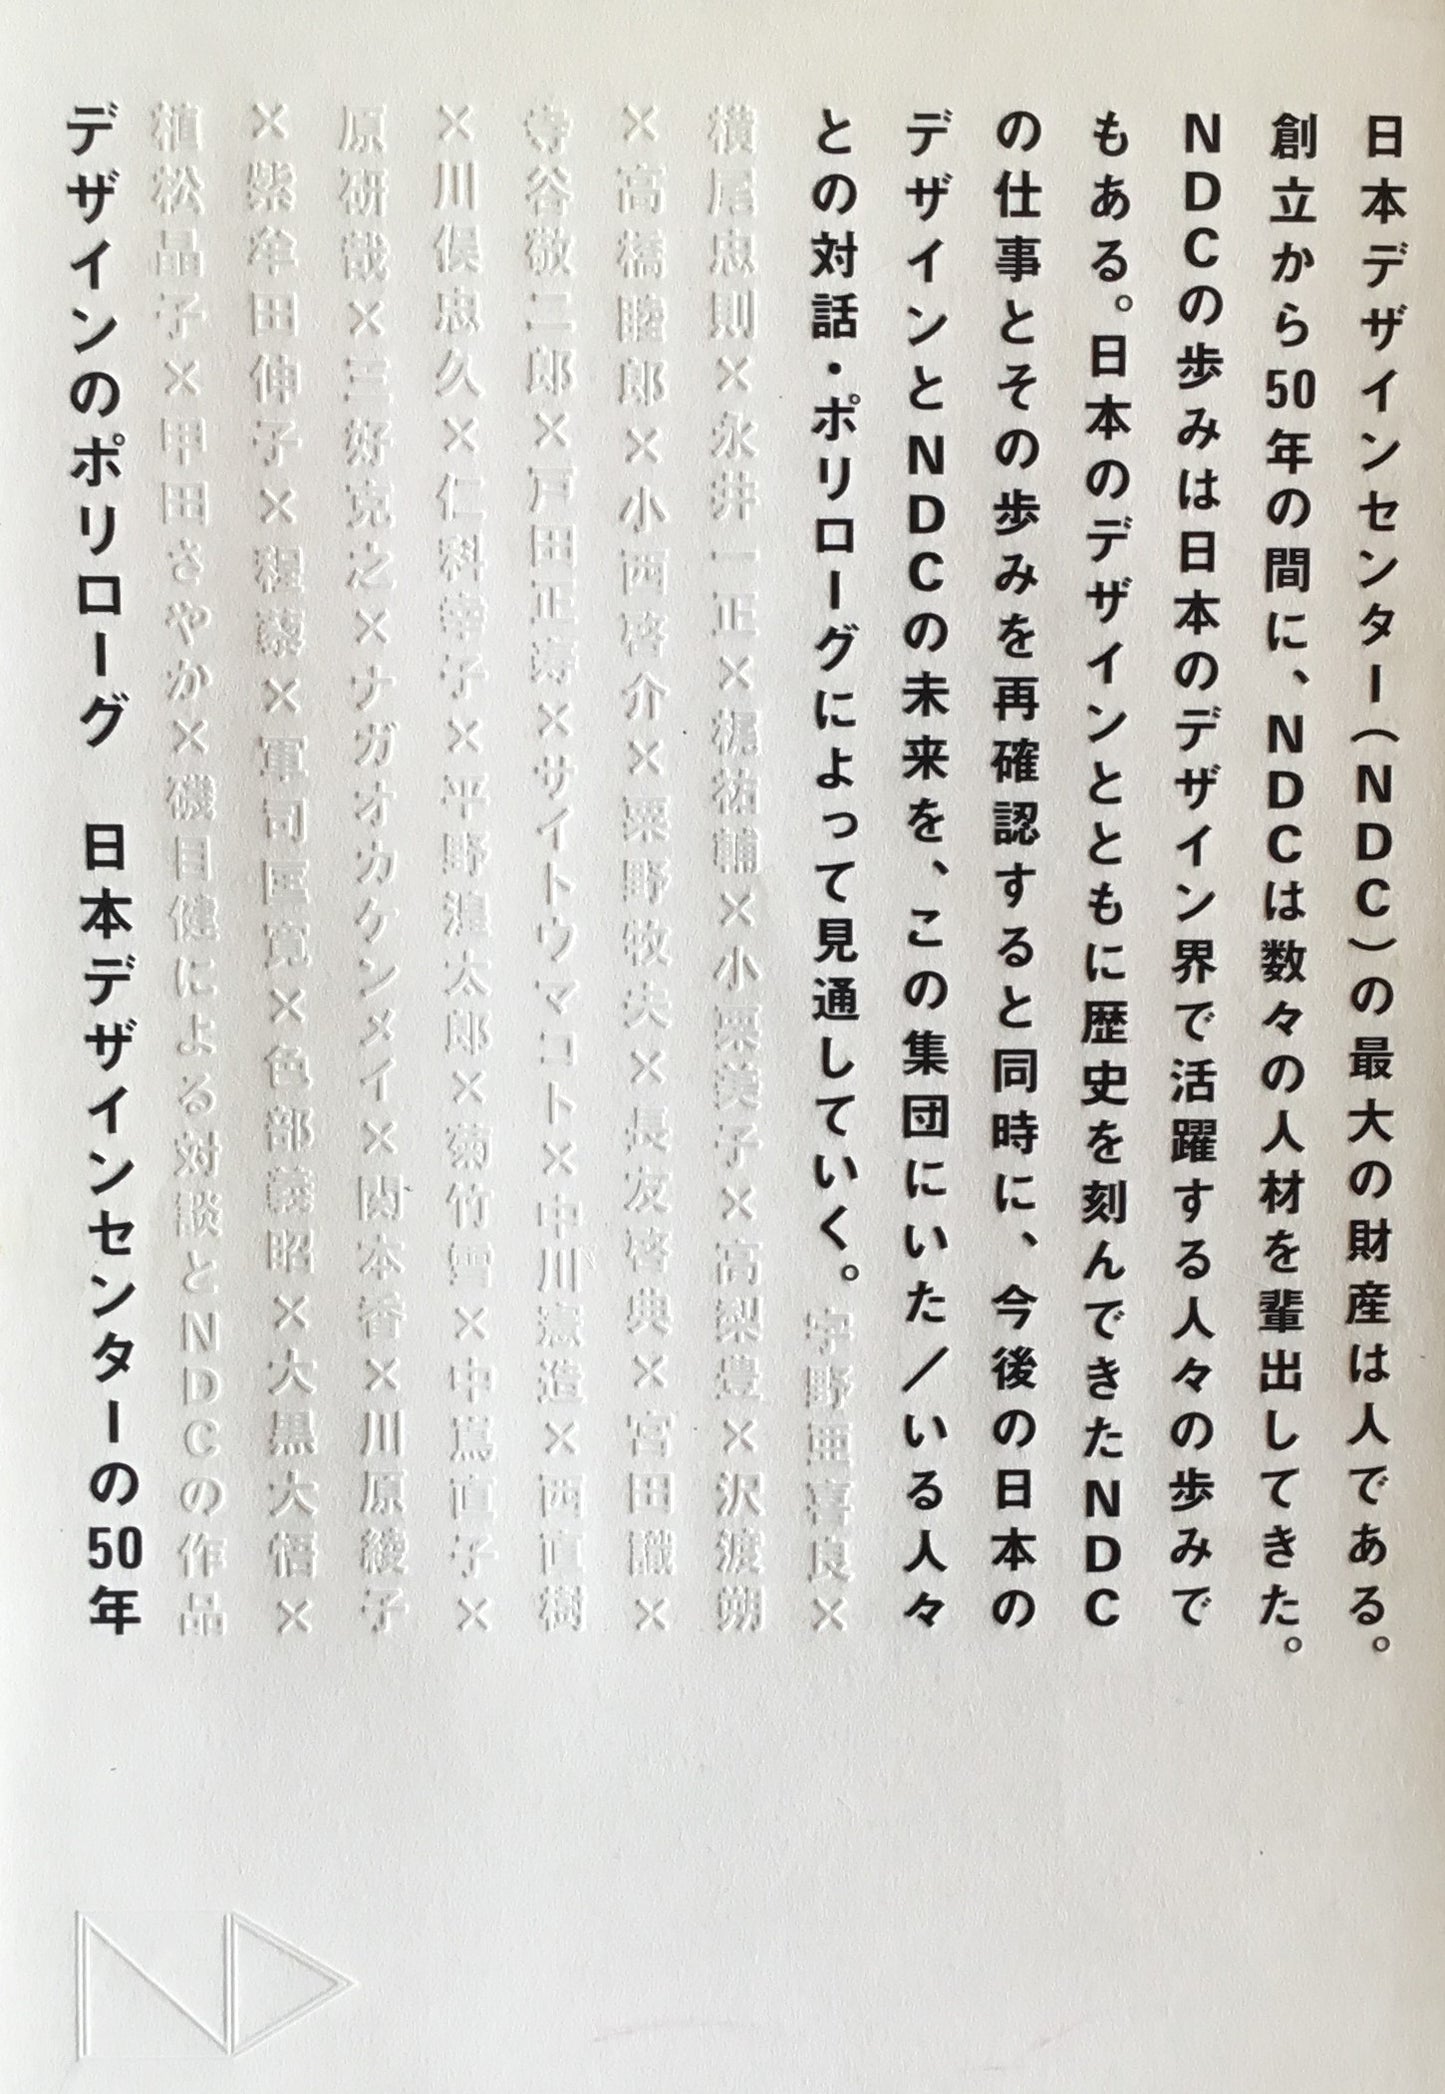 日本デザインセンター（NDC）の最大の財産は人である。
創立から50年の間に、NDCは数々の人材を輩出してきた。
NDCの歩みは日本のデザイン界で活躍する人々の歩みで
もある。日本のデザインとともに歴史を刻んできたNDC
の仕事とその歩みを再確認すると同時に、今後の日本の
デザインとNDCの未来を、この集団にいた／いる人々
との対話・ポリローグによって見通していく。宇野亜喜良×
横尾忠則×永井一正×梶祐輔×小栗美子×高梨豊×沢渡朔
×高橋睦郎×小西啓介×粟野牧夫×長友啓典×宮田識×
寺谷敬二郎×戸田正寿×サイトウマコト×中川憲造×西直樹
×川俣忠久×仁科幸子×平野湟太郎×菊竹雪×中嶌直子×
原研哉×三好克之×ナガオカケンメイ×関本香×川原綾子
×紫牟田伸子×程藜×軍司匡寛×色部義昭×大黒大悟×
植松晶子×甲田さやか×磯目健による対談とNDCの作品
デザインのポリローグ　日本デザインセンターの50年